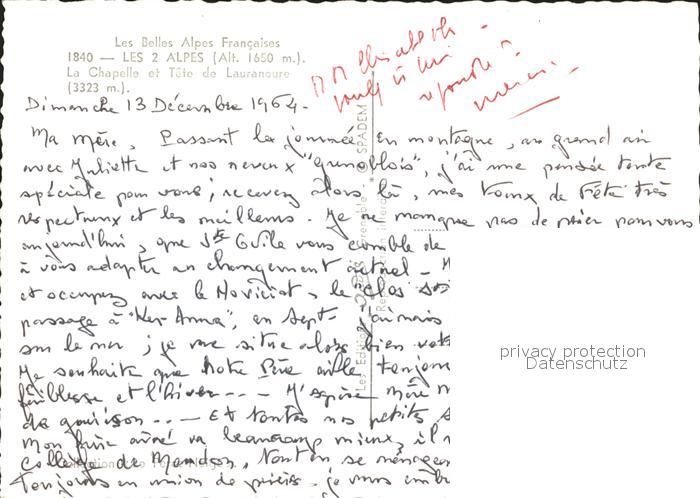 Les Belles Alpes Françaises
1840 — LES 2 ALPES (Alt. 1650 m.).
La Chapelle et Tête de Lauranoure
(3323 m.).
M M Elisabeth
voulez
répondre
merci
Dimanche 13 Décembre 1964.
Ma Mère, Passant la journée en montagne, au grand air
avec Juliette et nos neveux "grenoblois", j'ai une pensée toute
spéciale pour vous ; recevez alors, là, mes voeux de Fête très
respectueux et les meilleurs. Je ne manque pas de prier pour vous
aujourd'hui, que Ste Odile vous comble de
à vous adapter au changement actuel -
et occupez avec le Noviciat, le "Clos
passage à "Ker-Anna", en Sept-
sur le mer ; je me situe alors bien
Je souhaite que Notre Père aille toujours
faiblesse et l'hiver - - - J'espère Mère
de guérison - - - Et toutes nos petites
Mon frère aîné va beaucoup mieux, il
collège de Meudon, tout en se ménageant
Toujours en union de prières - je vous
SPADEM
privacy protection
Datenschutz